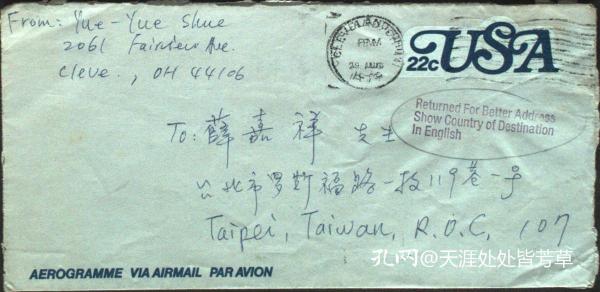 From: Yue-Yue Shue
2061 Fairview Ave.
Cleve., OH 44106
CLEVELAND, OHIO
PM
22c USA
Returned For Better Address
Show Country of Destination
In English
To: 薛嘉祥 先生
台北市罗斯福路一段119巷一号
Taipei, Taiwan, R.O.C, 107
AEROGRAMME VIA AIRMAIL PAR AVION
孔网@天涯处处皆芳草